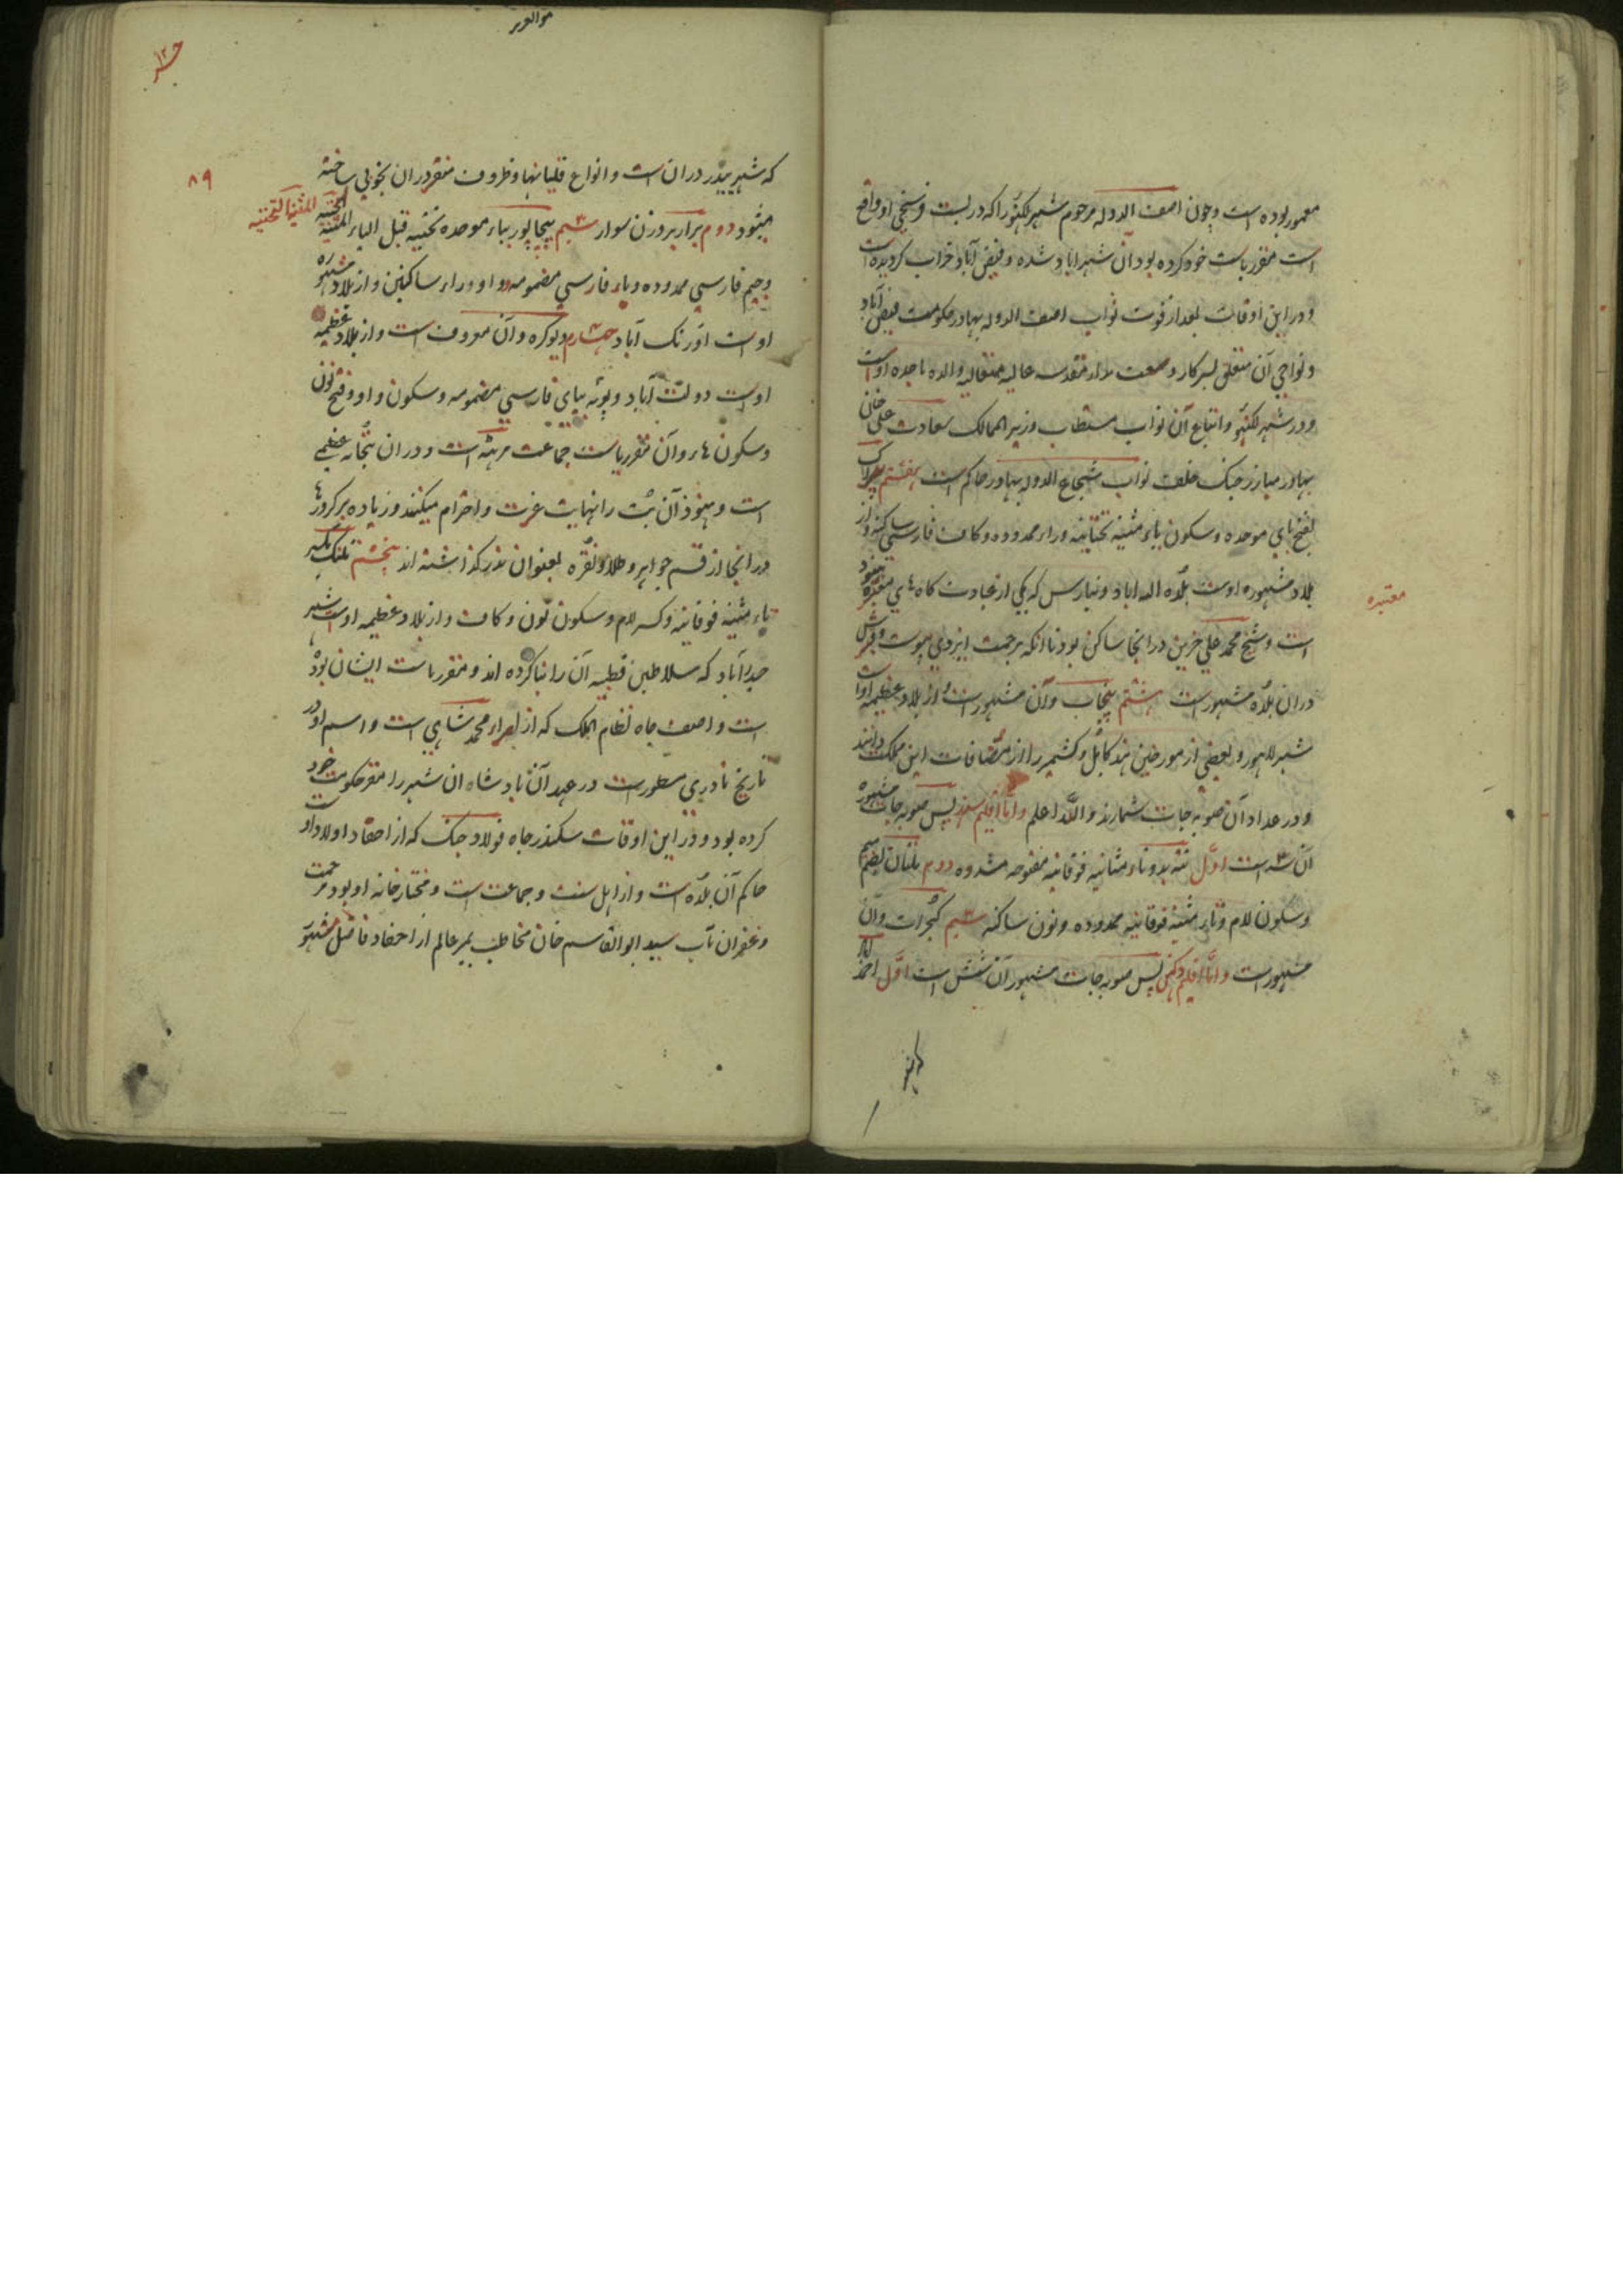 معمور بوده است و چون اصف الدوله مرحوم شهر لکنهو را که در بست فرسخی او واقع
است مقر ریاست خود کرده بود آن شهر اباد شده و فیض آباد خراب کردیده است
و در این اوقات بعد از فوت نواب اصف الدوله بهادر حکومت فیض آباد
و نواحی آن متعلق بسرکار عالیه متعالیه والده ماجده اوست
و در شهر لکنهو و اتباع آن نواب مستطاب وزیر الممالک سعادت علی خان
بهادر مبارز جنک خلف نواب شجاع الدوله بهادر حاکم است هفتم بیراک
بفتح بای موحده و سکون یاء مثنیه تحتانیه و راء ممدوده و کاف فارسی ساکنه و از
بلاد مشهوره اوست بلده اله اباد و بنارس که یکی از عبادت کاه های هنود
معتبره
است و شیخ محمد علی حزین در انجا ساکن بود تا انکه برحمت ایزدی پیوست و قبرش
در ان بلده مشهور است هشتم پنجاب و آن مشهور است و از بلاد عظیمه اوست
شهر لاهور و بعضی از مورخین هند کابل و کشمیر را از مضافات این مملکت دانند
و در عداد آن صوبه جات شمارند و الله اعلم و اما اقلیم سند پس صوبه جات مشهوره
آن سه است اول تته بدو تاء مثنیه فوقانیه مفتوحه مشدده دوم ملتان بضم میم
و سکون لام و تاء مثنیه فوقانیه ممدوده و نون ساکنه سیم کجرات و آن
مشهور است و اما اقلیم دکهن پس صوبه جات مشهور آن شش است اول احمد اباد
۸۹
که شهر بیدر در ان است و انواع قلیانها و ظروف در ان بخوبی ساخته
میشود دوم برار بر وزن سوار سیم بیجاپور بباء موحده تحتیه قبل الیاء المثنیه التحتیه
و جیم فارسی ممدوده و باء فارسی مضمومه و واو و راء ساکنین و از بلاد مشهوره
اوست اورنک آباد چهارم دیوکره و آن معروف است و از بلاد عظیمه
اوست دولت آباد و پونه ببای فارسی مضمومه و سکون واو و فتح نون
و سکون هاء و آن مقر ریاست جماعت مرهته است و در ان بتخانه عظیمی
است و هنوز آن بت را نهایت عزت و احترام میکنند و زیاده بر کرورها
در انجا از قسم جواهر و طلا و نقره بعنوان نذر کذاشته اند پنجم تلنک بکسر
تاء مثنیه فوقانیه و کسر لام و سکون نون و کاف و از بلاد عظیمه اوست شهر
حیدرآباد که سلاطین قطبیه آن را بنا کرده اند و مقر ریاست ایشان بوده
است و اصف جاه نظام الملک که از امراء محمد شاهی است و اسم او در
تاریخ نادری مسطور است در عهد آن بادشاه ان شهر را مقر حکومت خود
کرده بود و در این اوقات سکندر جاه فولاد جنک که از احفاد اولاد اوست
حاکم آن بلده است و از اهل سنت و جماعت است و مختار خانه او بود مرحمت
و غفران مآب سید ابو القاسم خان مخاطب بمیر عالم از احفاد فاضل مشهور